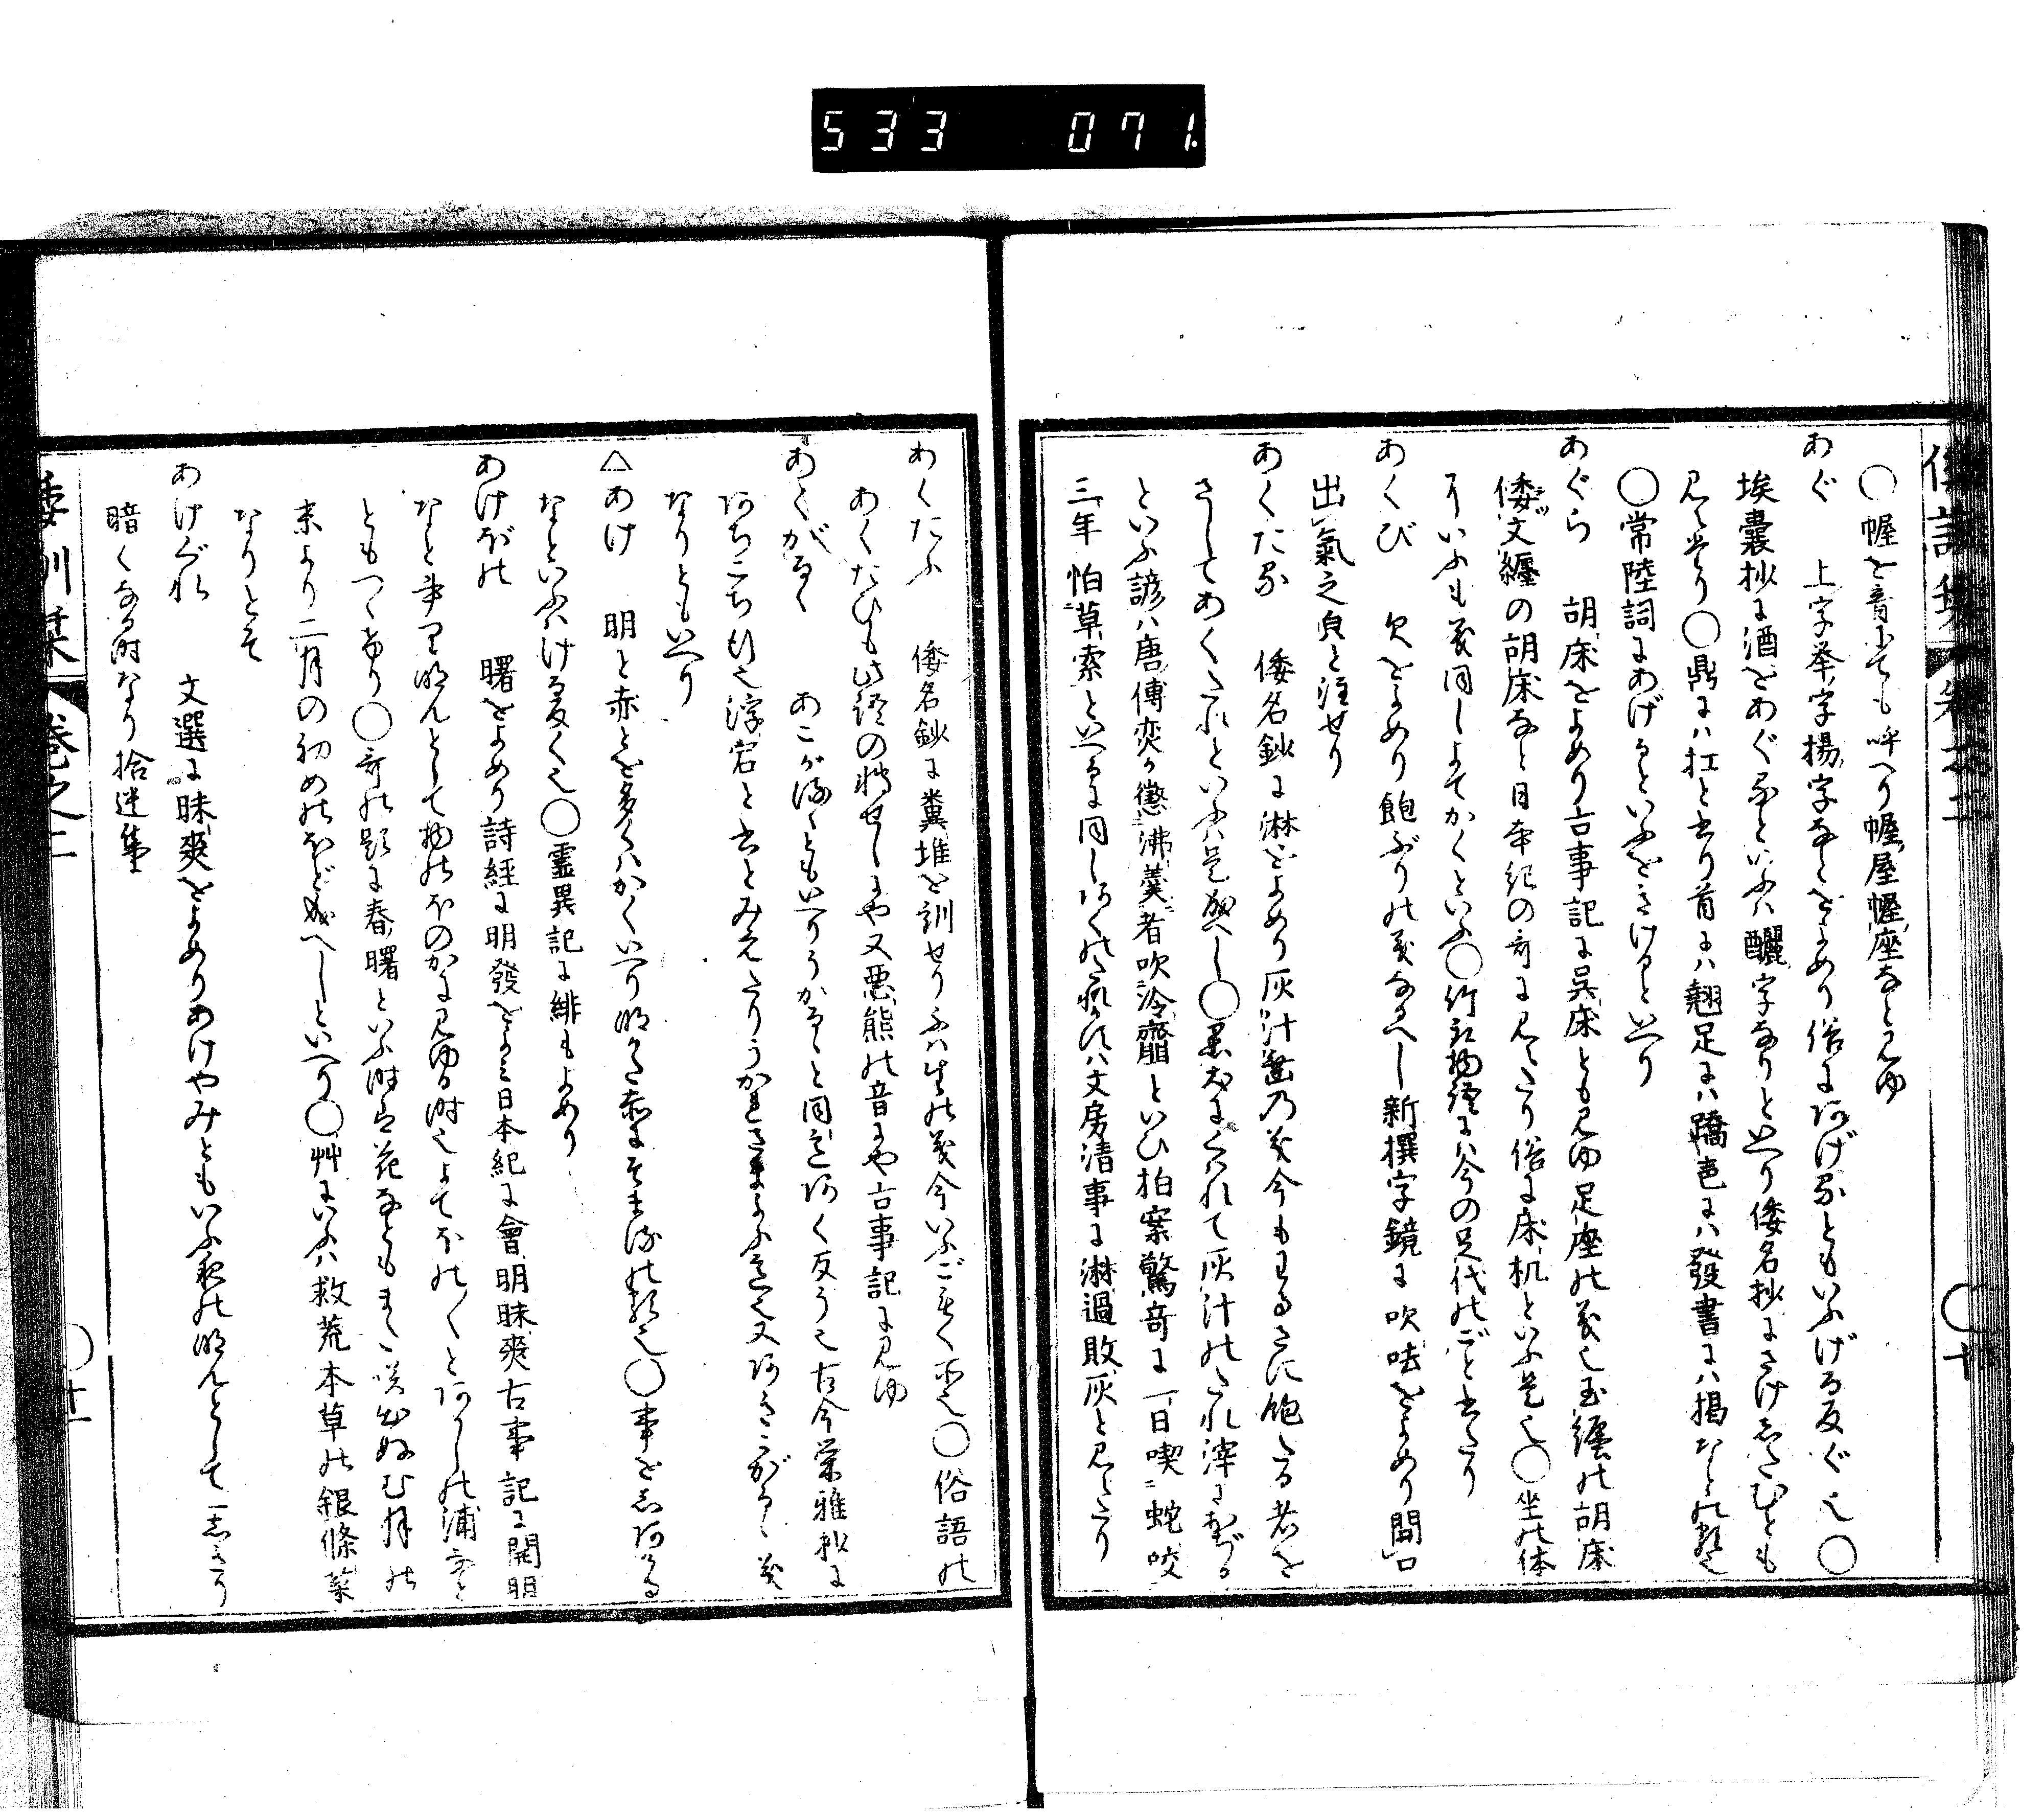 533 071
倭訓栞 巻之二 ○十
○幄を音にても呼へり幄屋幄座なと見ゆ
あぐ 上字挙字揚字なとをよめり俗にあげるともいふげる反ぐ也○
埃嚢抄に酒をあぐるといふハ釃字なりといへり倭名抄にさけしたむとも
見えたり○鼎にハ扛と書り首にハ翹足にハ蹻色にハ發書にハ掲なとの類也
○常陸詞にあげるといふをさけるといへり
あぐら 胡床をよめり古事記に呉床とも見ゆ足座の義也玉纒の胡床
倭文纒の胡床なと日本紀の哥に見えたり俗に床机といふ是也○坐の体
をいふも義同しよてかくといふ○竹取物語にハ今の足代のごと書たり
あくび 欠をよめり飽ぶりの義なるへし新撰字鏡に吹呿をよめり開口
出氣之皃と注せり
あくたる 倭名鈔に淋をよめり灰汁垂の義今もわるさに飽たる者を
さしてあくたれといふハ是成へし○黒犬にくはれて灰汁のたれ滓におづる
といふ諺ハ唐傳奕か懲沸羹者吹冷齏といひ拍案驚奇に一日喫蛇咬
三年怕草索といへるに同しあくのたれかすハ文房清事に淋過敗灰と見えたり
あくたふ 倭名鈔に糞堆を訓せりふハ生の義今いふごもく所也○俗語の
あくたひも此語の轉せしにや又悪熊の音にや古事記に見ゆ
あくがるゝ あこがるゝともいへりうかるゝと同意あく反う也古今栄雅抄に
あちこち行也浮宕と書とみえたりうかれさまよふ意也又あきこがるゝ義
なりともいへり
△あけ 明と赤とを多くハかくいへり明るき赤にそまるの類也○事をしあくる
なといふハける反く也○霊異記に緋もよめり
あけぼの 曙をよめり詩経に明發をよミ日本紀に會明昧爽古事記に開明
なと事り明んとして物のほのかに見ゆる時也よてほの〱とあかしの浦なと
ともつゝけり○哥の題に春曙といふ時ハ花なともまた咲出ぬむ月の
末より二月の初めのほどなるへしといへり○艸にいふハ救荒本草の銀條菜
なりとそ
あけぐれ 文選に昧爽をよめりあけやみともいふ夜の明んとして一しきり
暗くなる時なり拾遺集
倭訓栞 巻之二 ○十一